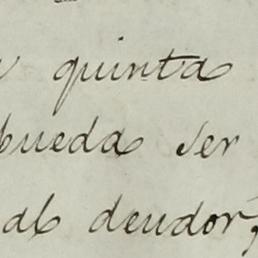 quinta
pueda ser
al deudor,